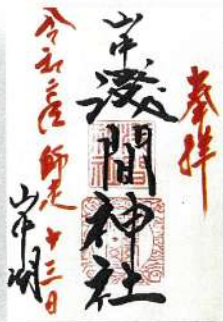 奉拝
山中
浅間神社
令和二年 師走 十三日
山中湖